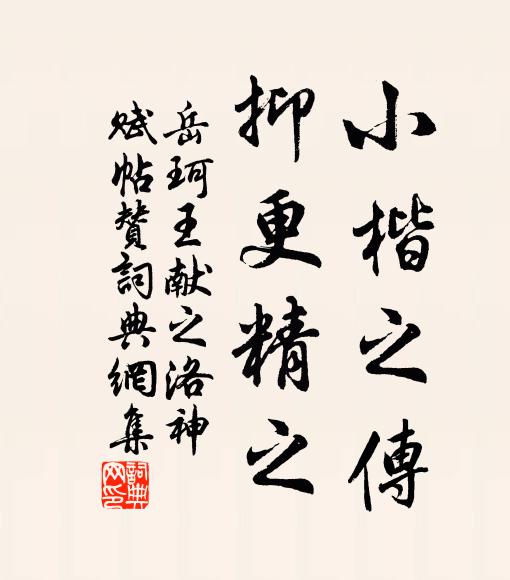 小楷之傳
抑更精之
岳珂王献之洛神
赋帖赞詞典網集
詞典网印